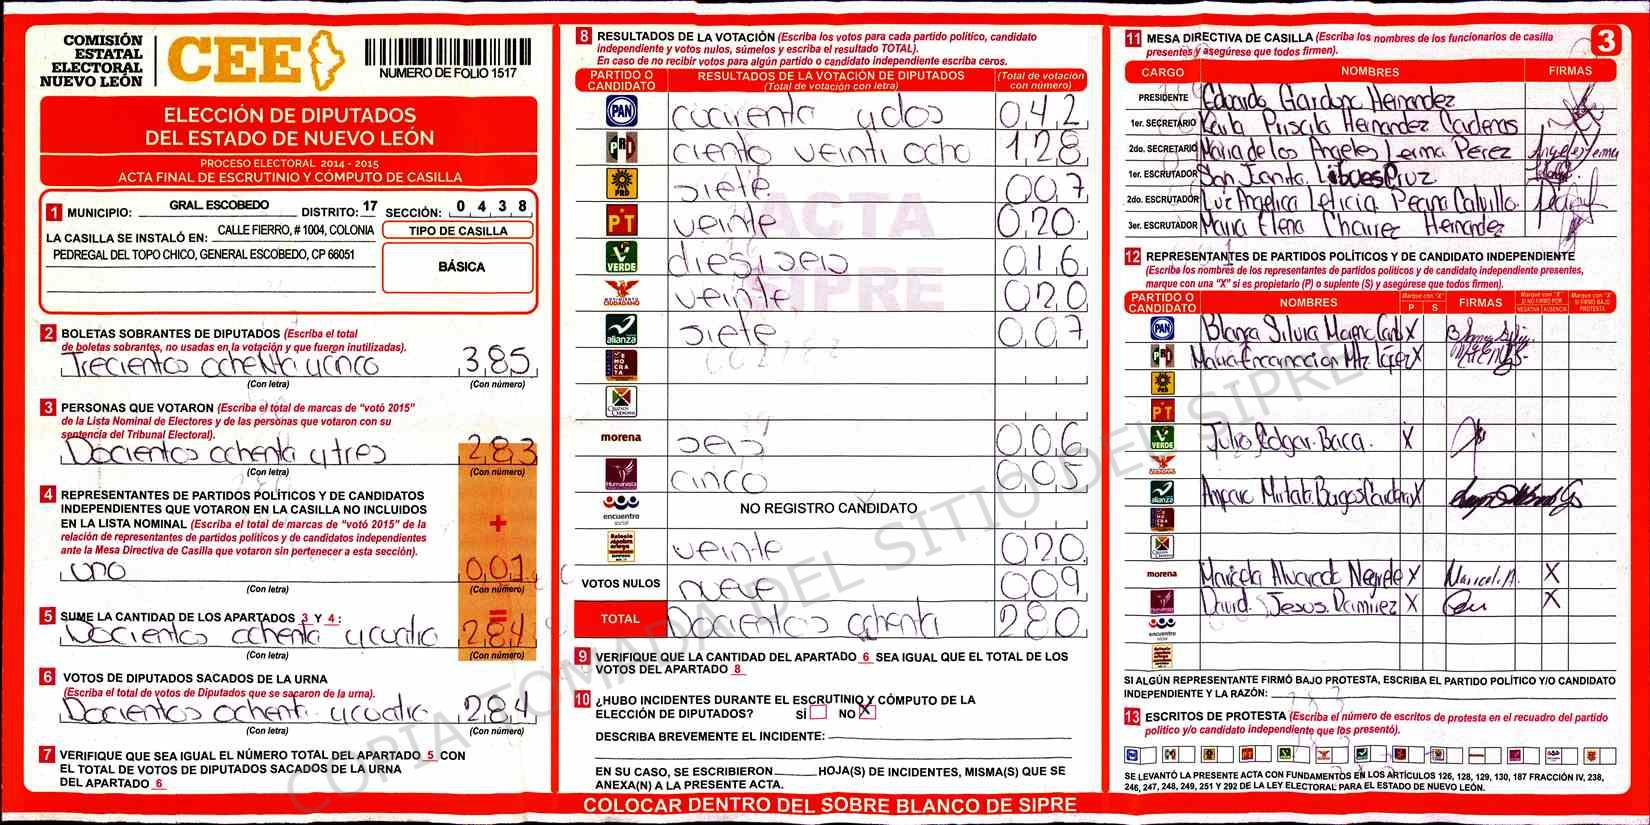 COMISIÓN
ESTATAL
ELECTORAL
NUEVO LEÓN
CEE
NUMERO DE FOLIO 1517
ELECCIÓN DE DIPUTADOS
DEL ESTADO DE NUEVO LEÓN
PROCESO ELECTORAL 2014 - 2015
ACTA FINAL DE ESCRUTINIO Y CÓMPUTO DE CASILLA
1 MUNICIPIO: GRAL. ESCOBEDO DISTRITO: 17 SECCIÓN: 0 4 3 8
LA CASILLA SE INSTALÓ EN: CALLE FIERRO, # 1004, COLONIA
PEDREGAL DEL TOPO CHICO, GENERAL ESCOBEDO, CP 66051
TIPO DE CASILLA
BÁSICA
2 BOLETAS SOBRANTES DE DIPUTADOS (Escriba el total
de boletas sobrantes, no usadas en la votación y que fueron inutilizadas).
Trecientos ochenta ycinco 385
(Con letra) (Con número)
3 PERSONAS QUE VOTARON (Escriba el total de marcas de “votó 2015”
de la Lista Nominal de Electores y de las personas que votaron con su
sentencia del Tribunal Electoral).
Docientos ochenta ytres 283
(Con letra) (Con número)
4 REPRESENTANTES DE PARTIDOS POLÍTICOS Y DE CANDIDATOS
INDEPENDIENTES QUE VOTARON EN LA CASILLA NO INCLUIDOS
EN LA LISTA NOMINAL (Escriba el total de marcas de “votó 2015” de la
relación de representantes de partidos políticos y de candidatos independientes
ante la Mesa Directiva de Casilla que votaron sin pertenecer a esta sección).
+
uno 001
(Con letra) (Con número)
=
5 SUME LA CANTIDAD DE LOS APARTADOS 3 Y 4 :
Docientos ochenta ycuatro 284
(Con letra) (Con número)
6 VOTOS DE DIPUTADOS SACADOS DE LA URNA
(Escriba el total de votos de Diputados que se sacaron de la urna).
Docientos ochenta ycuatro 284
(Con letra) (Con número)
7 VERIFIQUE QUE SEA IGUAL EL NÚMERO TOTAL DEL APARTADO 5 CON
EL TOTAL DE VOTOS DE DIPUTADOS SACADOS DE LA URNA
DEL APARTADO 6
8 RESULTADOS DE LA VOTACIÓN (Escriba los votos para cada partido político, candidato
independiente y votos nulos, súmelos y escriba el resultado TOTAL).
En caso de no recibir votos para algún partido o candidato independiente escriba ceros.
PARTIDO O
CANDIDATO
RESULTADOS DE LA VOTACIÓN DE DIPUTADOS
(Total de votación con letra)
(Total de votación
con número)
PAN cuarenta ydos 042
PRI ciento veinti ocho 128
PRD siete 007
PT veinte 020
VERDE diesiseis 016
MOVIMIENTO CIUDADANO veinte 020
alianza siete 007
morena seis 006
Humanista cinco 005
encuentro social NO REGISTRO CANDIDATO
veinte 020
VOTOS NULOS nueve 009
TOTAL Docientos ochenta 280
ACTA
SIPRE
9 VERIFIQUE QUE LA CANTIDAD DEL APARTADO 6 SEA IGUAL QUE EL TOTAL DE LOS
VOTOS DEL APARTADO 8
10 ¿HUBO INCIDENTES DURANTE EL ESCRUTINIO Y CÓMPUTO DE LA
ELECCIÓN DE DIPUTADOS? SÍ NO X
DESCRIBA BREVEMENTE EL INCIDENTE:
EN SU CASO, SE ESCRIBIERON HOJA(S) DE INCIDENTES, MISMA(S) QUE SE
ANEXA(N) A LA PRESENTE ACTA.
COLOCAR DENTRO DEL SOBRE BLANCO DE SIPRE
11 MESA DIRECTIVA DE CASILLA (Escriba los nombres de los funcionarios de casilla
presentes y asegúrese que todos firmen).
3
CARGO NOMBRES FIRMAS
PRESIDENTE Eduardo Hernandez
1er. SECRETARIO Karla Priscila Hernandez Cardenas
2do. SECRETARIO Maria de los Angeles Lerma Perez
1er. ESCRUTADOR San Juanita
2do. ESCRUTADOR Luz Angelica Leticia Calvillo
3er. ESCRUTADOR Maria Elena Chairez Hernandez
12 REPRESENTANTES DE PARTIDOS POLÍTICOS Y DE CANDIDATO INDEPENDIENTE
(Escriba los nombres de los representantes de partidos políticos y de candidato independiente presentes,
marque con una “X” si es propietario (P) o suplente (S) y asegúrese que todos firmen).
PARTIDO O
CANDIDATO
NOMBRES
Marque con “X”
P S
FIRMAS
Marque con “X”
SI NO FIRMÓ POR
NEGATIVA AUSENCIA
Marque con “X”
SI FIRMÓ BAJO
PROTESTA
PAN Blanca Silvia X
PRI Maria Encarnacion Mtz López X
PRD
PT
VERDE Julio Edgar Baca. X
alianza X
morena Maricela Alvarado Negrete X Maricela A. X
David Jesus Ramirez X X
encuentro social
SI ALGÚN REPRESENTANTE FIRMÓ BAJO PROTESTA, ESCRIBA EL PARTIDO POLÍTICO Y/O CANDIDATO
INDEPENDIENTE Y LA RAZÓN:
13 ESCRITOS DE PROTESTA (Escriba el número de escritos de protesta en el recuadro del partido
político y/o candidato independiente que los presentó).
SE LEVANTÓ LA PRESENTE ACTA CON FUNDAMENTOS EN LOS ARTÍCULOS 126, 128, 129, 130, 187 FRACCIÓN IV, 238,
246, 247, 248, 249, 251 Y 292 DE LA LEY ELECTORAL PARA EL ESTADO DE NUEVO LEÓN.
COPIA TOMADA DEL SITIO DEL SIPRE